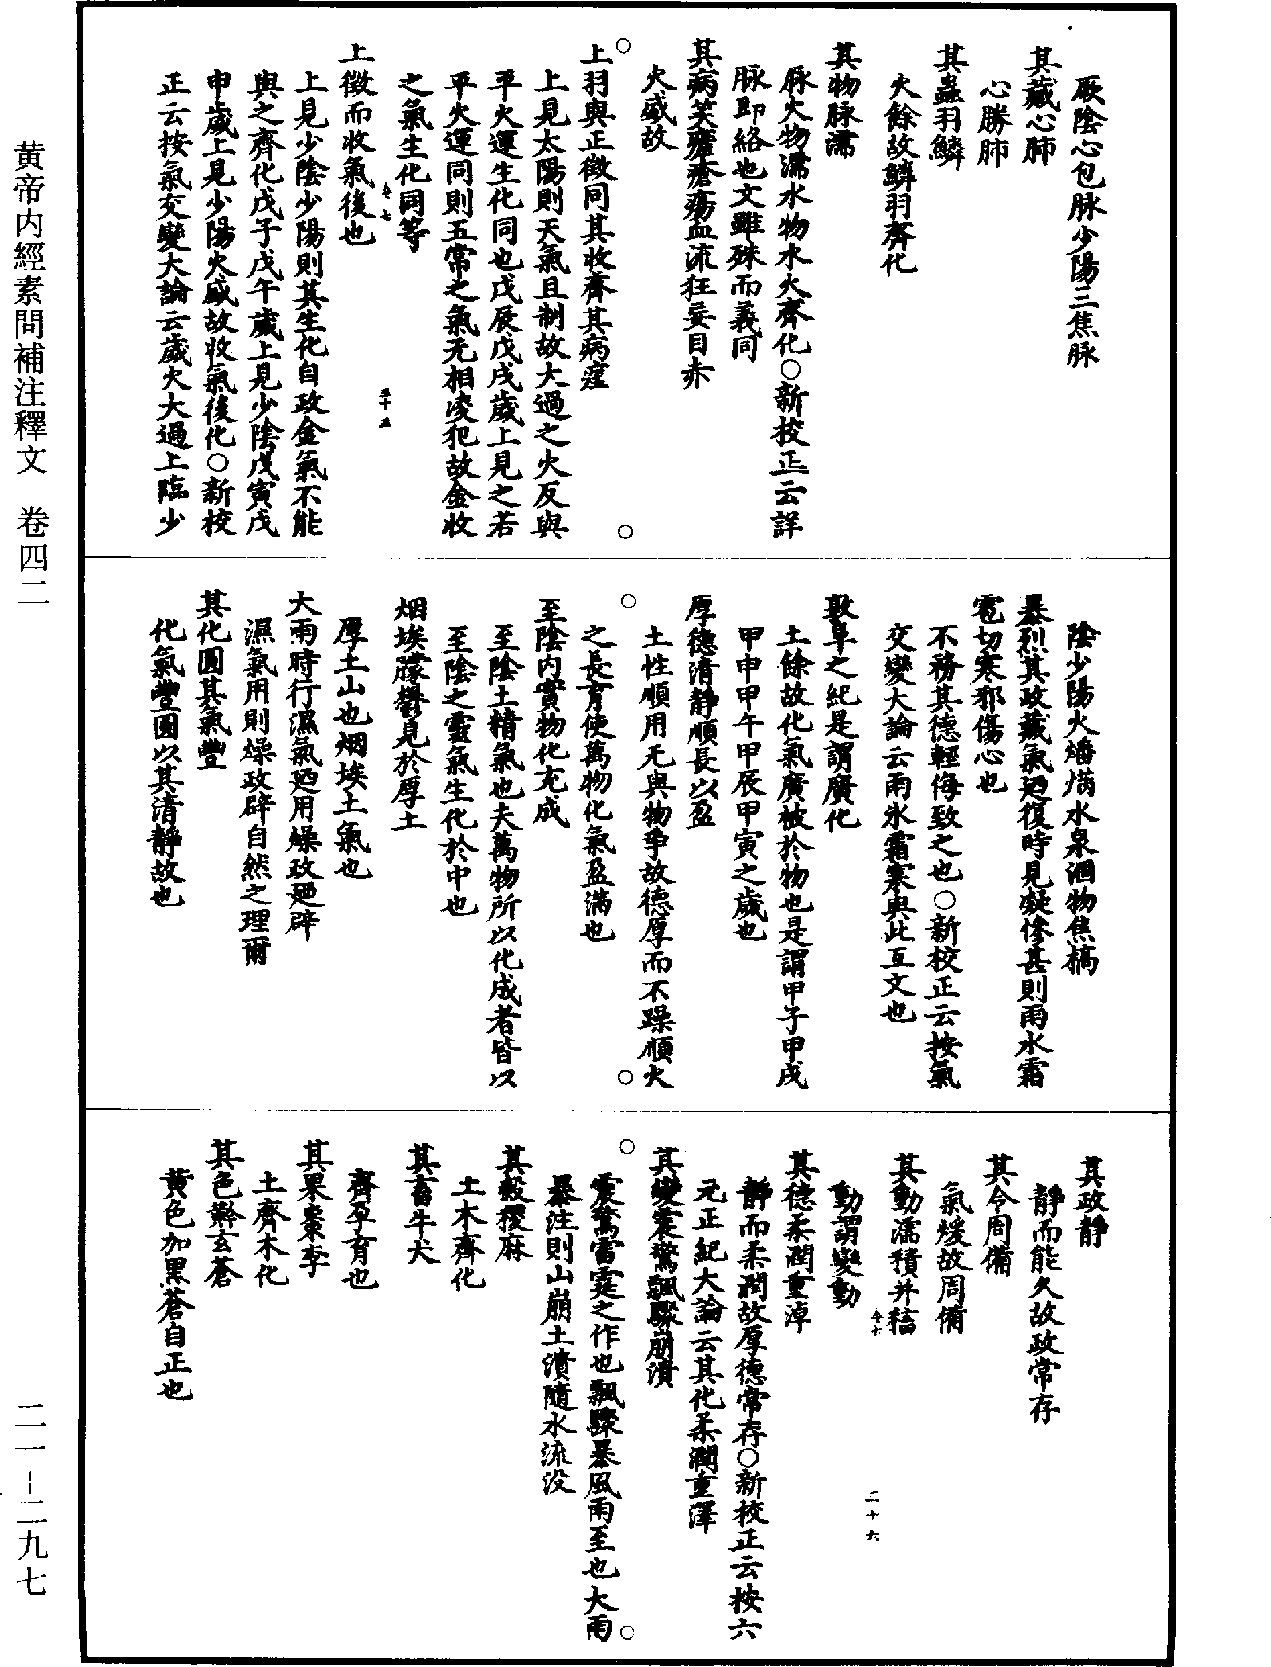 厥陰心包脉少陽三焦脉
其藏心肺
心勝肺
其蟲羽鱗
火餘故鱗羽齊化
其物脉濡
脉火物濡水物水火齊化○新校正云詳
脉即絡也文雖殊而義同
其病笑瘧瘡瘍血流狂妄目赤
火盛故
○
○
上羽與正徵同其收齊其病痓
上見太陽則天氣且制故大過之火反與
平火運生化同也戊辰戊戌歲上見之若
平火運同則五常之氣无相凌犯故金收
之氣生化同等
卷七
五十五
上徵而收氣後也
上見少陰少陽則其生化自政金氣不能
與之齊化戊子戊午歲上見少陰戊寅戊
申歲上見少陽火盛故收氣後化○新校
正云按氣交變大論云歲火大過上臨少
陰少陽火燔焫水泉涸物焦槁
暴烈其政藏氣廼復時見凝慘甚則雨水霜
雹切寒邪傷心也
不務其德輕侮致之也○新校正云按氣
交變大論云雨氷霜寒與此互文也
敦阜之紀是謂廣化
土餘故化氣廣被於物也是謂甲子甲戌
甲申甲午甲辰甲寅之歲也
厚德清靜順長以盈
土性順用无與物爭故德厚而不躁順火
○
○
之長育使萬物化氣盈滿也
至陰内實物化充成
至陰土精氣也夫萬物所以化成者皆以
至陰之靈氣生化於中也
烟埃朦鬱見於厚土
厚土山也烟埃土氣也
大雨時行濕氣廼用燥政廼辟
濕氣用則燥政辟自然之理爾
其化圓其氣豐
化氣豐圓以其清靜故也
其政靜
靜而能久故政常存
其令周備
氣緩故周備
其動濡積并稸
卷七
二十六
動謂變動
其德柔潤重淖
靜而柔潤故厚德常存○新校正云按六
元正紀大論云其化柔潤重澤
其變震驚飄驟崩潰
○
○
震驚雷霆之作也飄驟暴風雨至也大雨
暴注則山崩土潰隨水流没
其穀稷麻
土木齊化
其畜牛犬
齊孕育也
其果棗李
土齊木化
其色黅玄蒼
黃色加黑蒼自正也
黄帝内經素問補注釋文　卷四二
二一－二九七